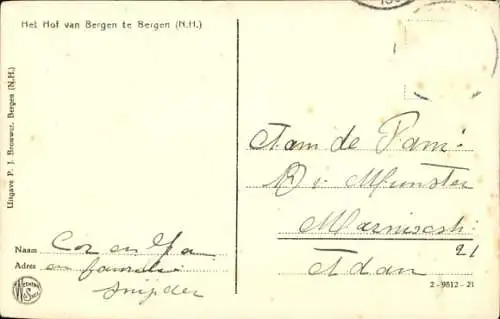 Het Hof van Bergen te Bergen (N.H.)
Uitgave P. J. Brouwer, Bergen (N.H.)
Aan de Fam:
v Munster
Marnixstr
21
Adam
Naam Cor en
Adres en familie
Snijder
2 - 9812 - 21